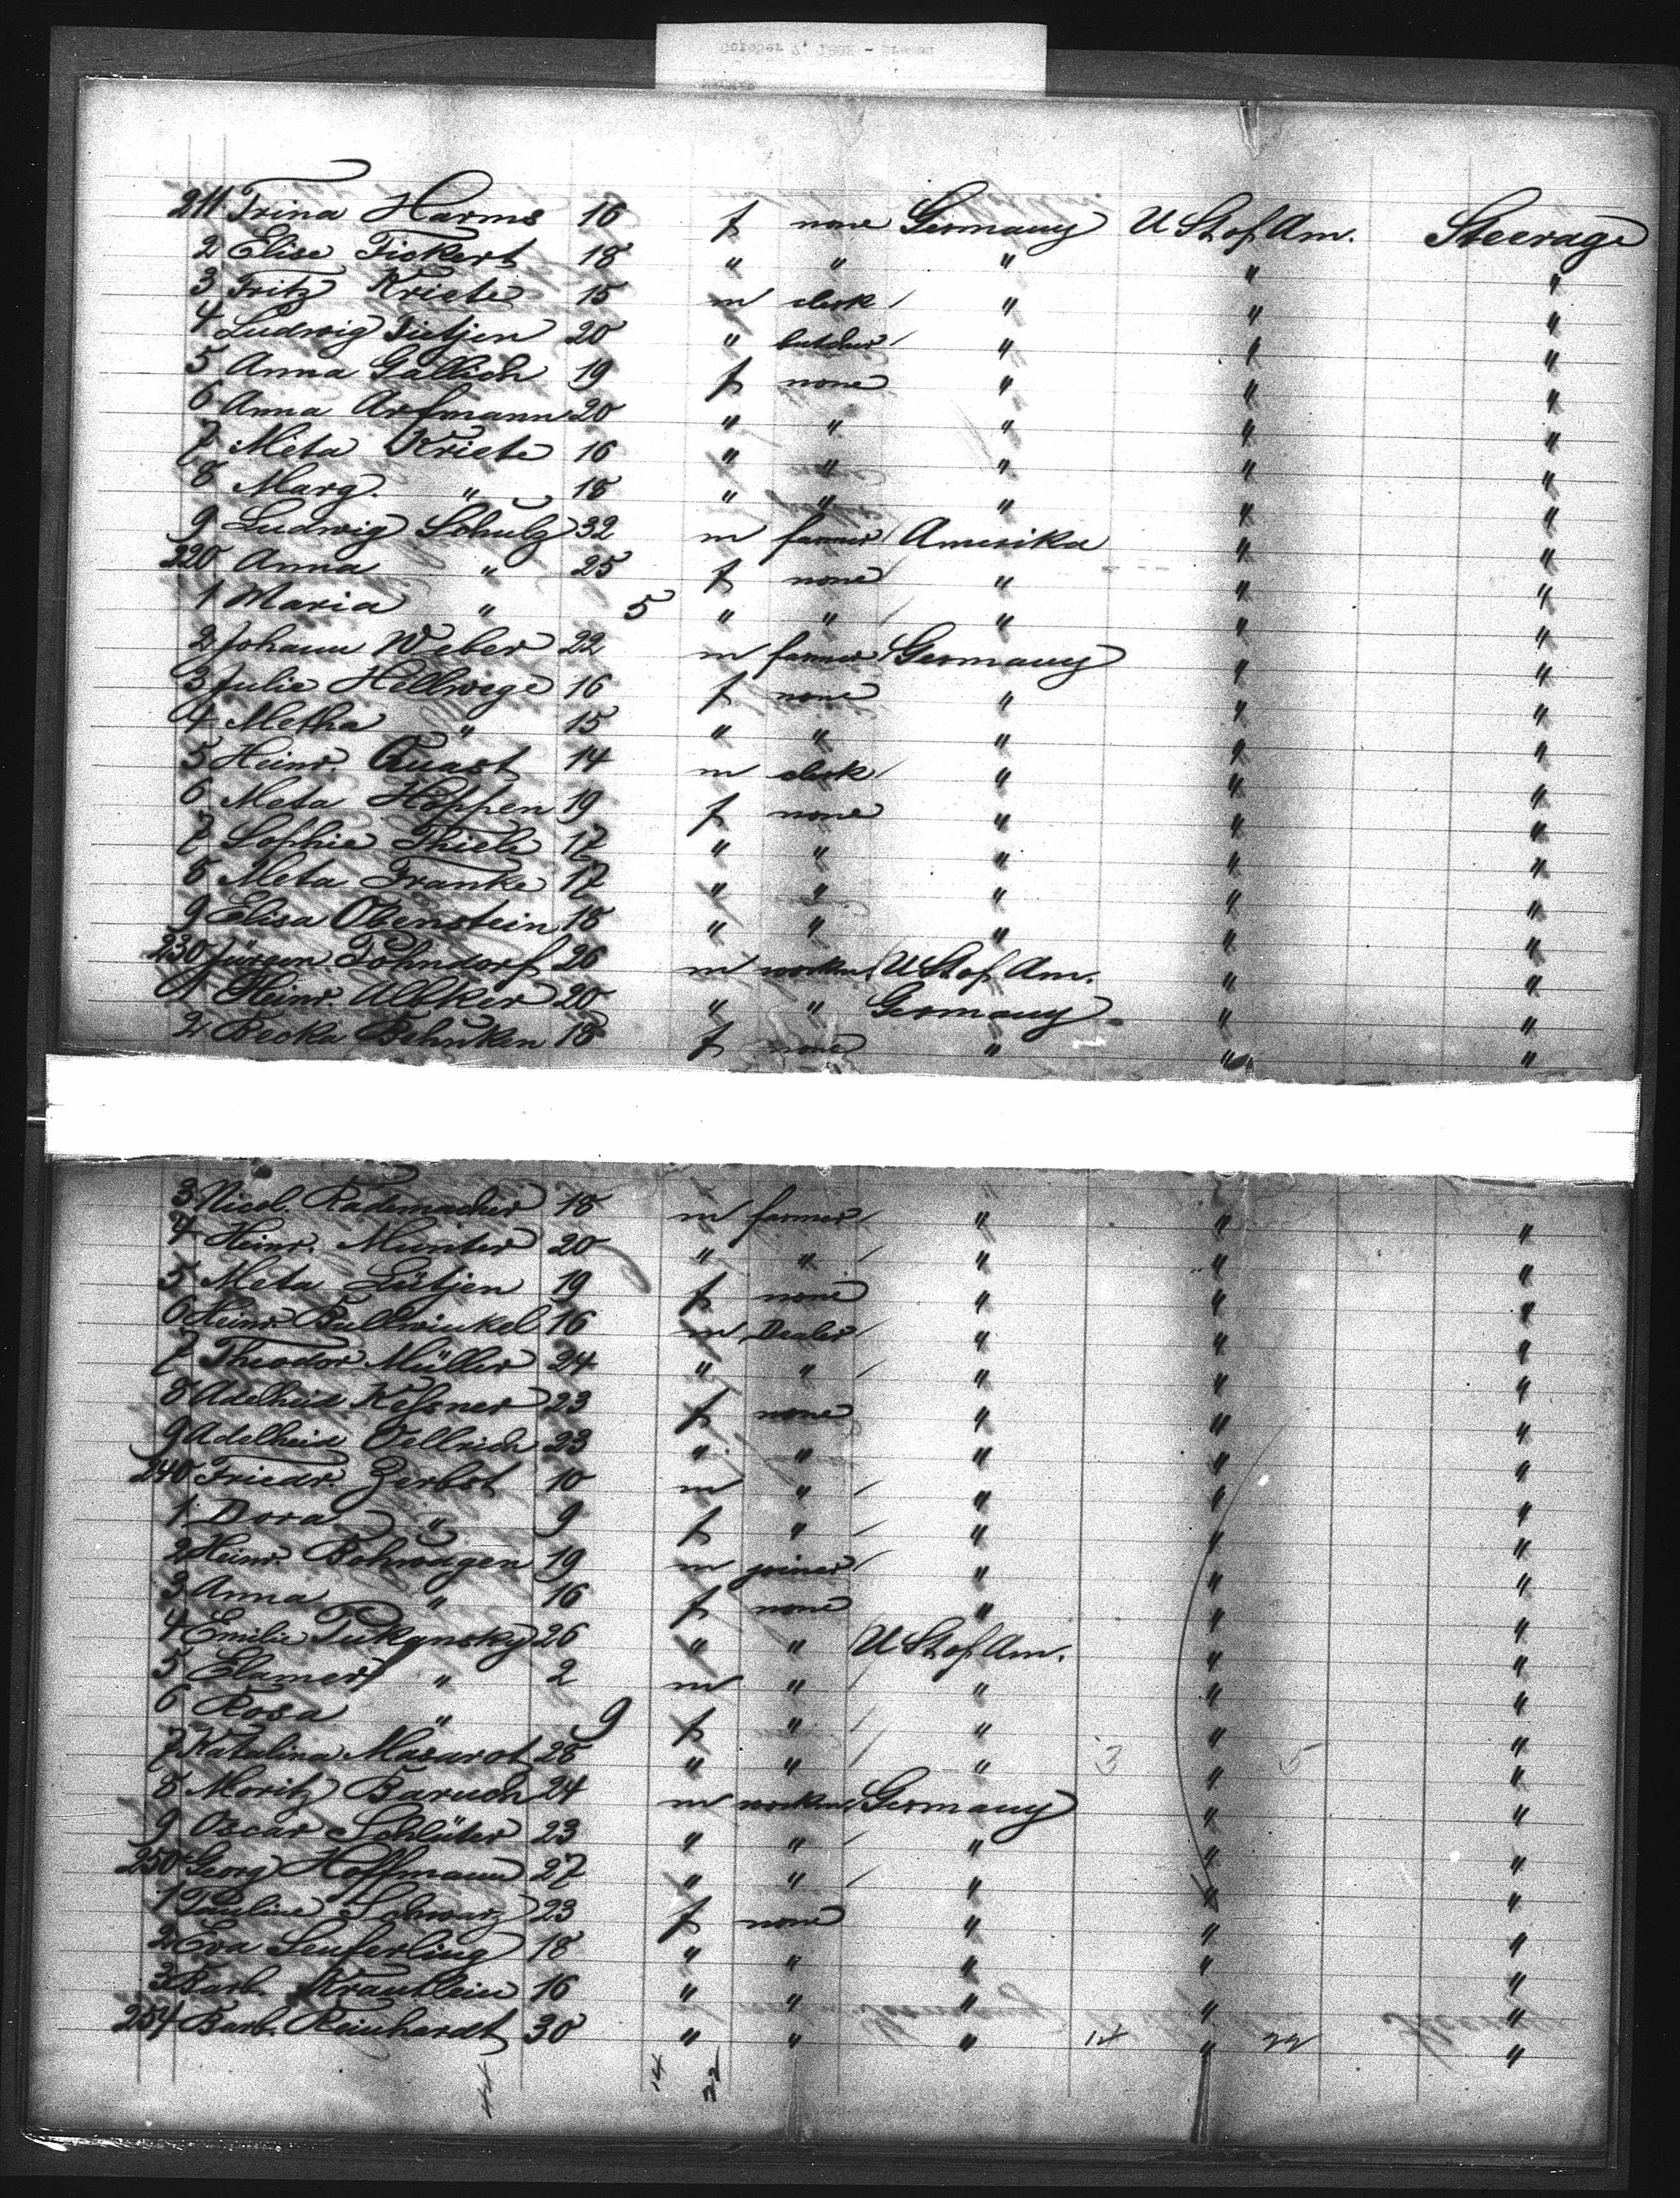 211 Trina Harms 16 f none Germany U St of Am. Steerage
2 Elise Fickert 18 " " " " "
3 Fritz Kriete 15 m clerk / " " "
4 Ludwig Tietjen 20 " butcher / " " "
5 Anna Gallich 19 f none " " "
6 Anna Arfmann 20 " " " " "
7 Meta Kriete 16 " " " " "
8 Marg. " 18 " " " " "
9 Ludwig Schulz 32 m farmer / Amerika " "
220 Anna " 25 f none " " "
1 Maria " 5 " " / " " "
2 Johann Weber 22 m farmer / Germany " "
3 Julie Hellwege 16 f none " " "
4 Metha " 15 " " " " "
5 Heinr. Quast 14 m clerk / " " "
6 Meta Höppen 19 f none " " "
7 Sophie Thiele 17 " " " " "
8 Meta Franke 17 " " " " "
9 Elisa Obenstein 18 " " " " "
230 Jürgen Pohndorf 26 m workm. / U St of Am. " "
1 Heinr. 20 " " Germany " "
2 Becka Behnken 18 f none " " "
3 Nicol. Rademacher 18 m farmer / " " "
4 Heinr. Münter 20 " " / " " "
5 Meta Lütjen 19 f none " " "
6 Heinr. Bullwinkel 16 m Dealer / " " "
7 Theodor Müller 24 " " / " " "
8 Adelheid Kessner 23 f none " " "
9 Adelheid Oellrich 23 " " " " "
240 Friedr. Zerbst 10 m " / " " "
1 Dora " 9 f " / " " "
2 Heinr. 19 m joiner / " " "
3 Anna " 16 f none " " "
4 Emilie 26 " " U St of Am. " "
5 Elamer " 2 m " " " "
6 Rosa " 9 f " / " " "
7 Katalina Masarot 28 " " / " 3 " 5 "
8 Moritz Baruch 24 m workm. / Germany " "
9 Oscar Schlüter 23 " " / " " "
250 Georg Hoffmann 27 " " / " " "
1 Pauline Schwarz 23 f none " " "
2 Eva Seuferling 18 " " " " "
3 Barb. Kräutlein 16 " " " " "
254 Barb. Reinhardt 30 " " " 14 " 22 "
44 14 22